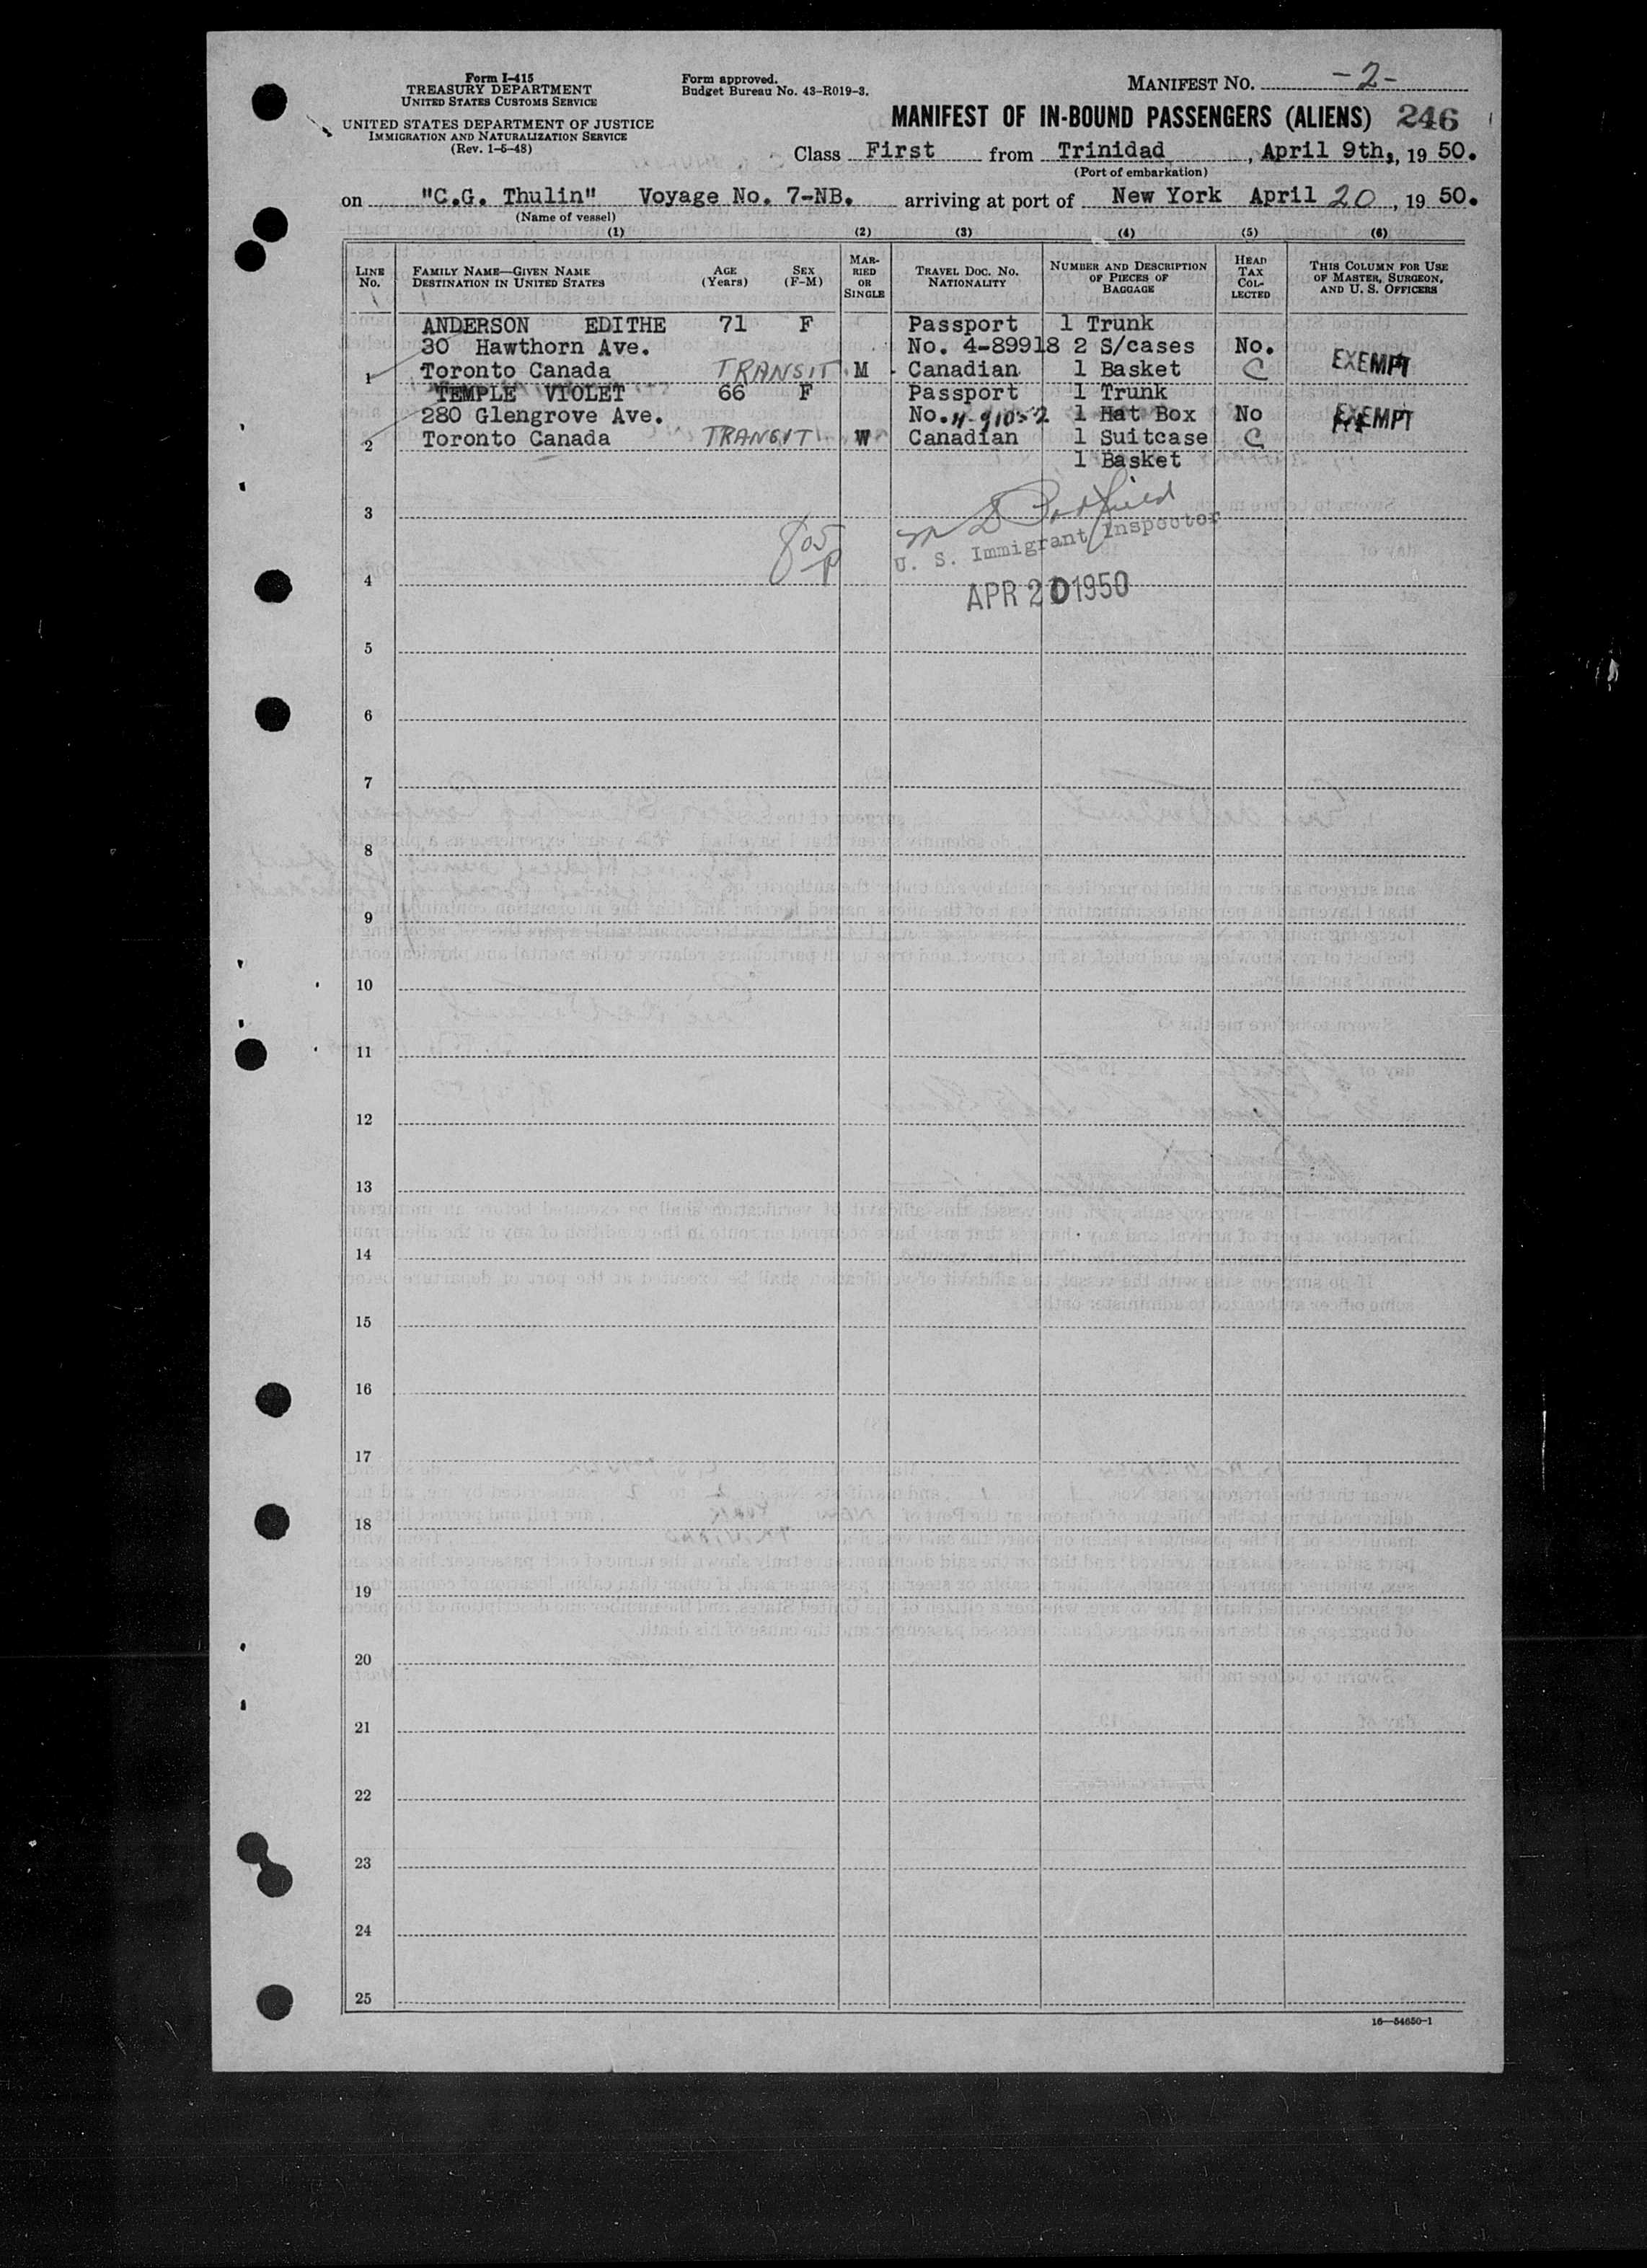 Form I-415
TREASURY DEPARTMENT
UNITED STATES CUSTOMS SERVICE
UNITED STATES DEPARTMENT OF JUSTICE
IMMIGRATION AND NATURALIZATION SERVICE
(Rev. 1-5-48)
Form approved.
Budget Bureau No. 43-R019-3.
MANIFEST NO. -2-
MANIFEST OF IN-BOUND PASSENGERS (ALIENS) 246
Class First from Trinidad, April 9th, 1950.
(Port of embarkation)
on "C.G. Thulin" Voyage No. 7-NB. arriving at port of New York April 20, 1950.
(Name of vessel)
(1) (2) (3) (4) (5) (6)
LINE No. FAMILY NAME—GIVEN NAME DESTINATION IN UNITED STATES AGE (Years) SEX (F-M) MARRIED OR SINGLE TRAVEL DOC. NO. NATIONALITY NUMBER AND DESCRIPTION OF PIECES OF BAGGAGE HEAD TAX COLLECTED THIS COLUMN FOR USE OF MASTER, SURGEON, AND U. S. OFFICERS
ANDERSON EDITHE 71 F Passport 1 Trunk
30 Hawthorn Ave. No. 4-89918 2 S/cases No.
1 Toronto Canada TRANSIT M Canadian 1 Basket C EXEMPT
TEMPLE VIOLET 66 F Passport 1 Trunk
280 Glengrove Ave. No. 4-91052 1 Hat Box No EXEMPT
2 Toronto Canada TRANSIT W Canadian 1 Suitcase C
1 Basket
3
U. S. Immigrant Inspector
805 p
4
APR 20 1950
5
6
7
8
9
10
11
12
13
14
15
16
17
18
19
20
21
22
23
24
25
16—54650-1